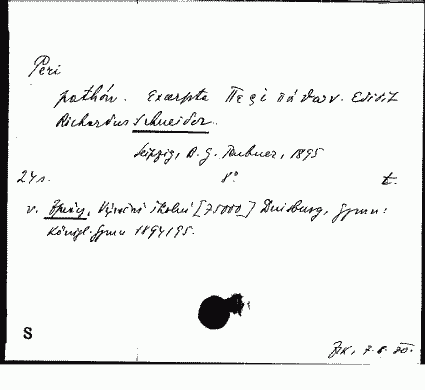 Peri
pathón. Excerpta Περὶ πάθων. Edidit
Richardus Schneider.
Leipzig, B. G. Teubner, 1895
24 s. 8° t.
v. Zprávy, Výroční školní [75000] Duisburg, Gymn:
Königl. Gymn 1894/95.
S
7-8-80.